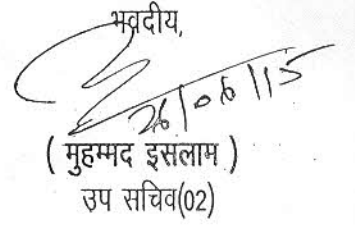 भवदीय,
26/06/15
( मुहम्मद इसलाम )
उप सचिव(02)